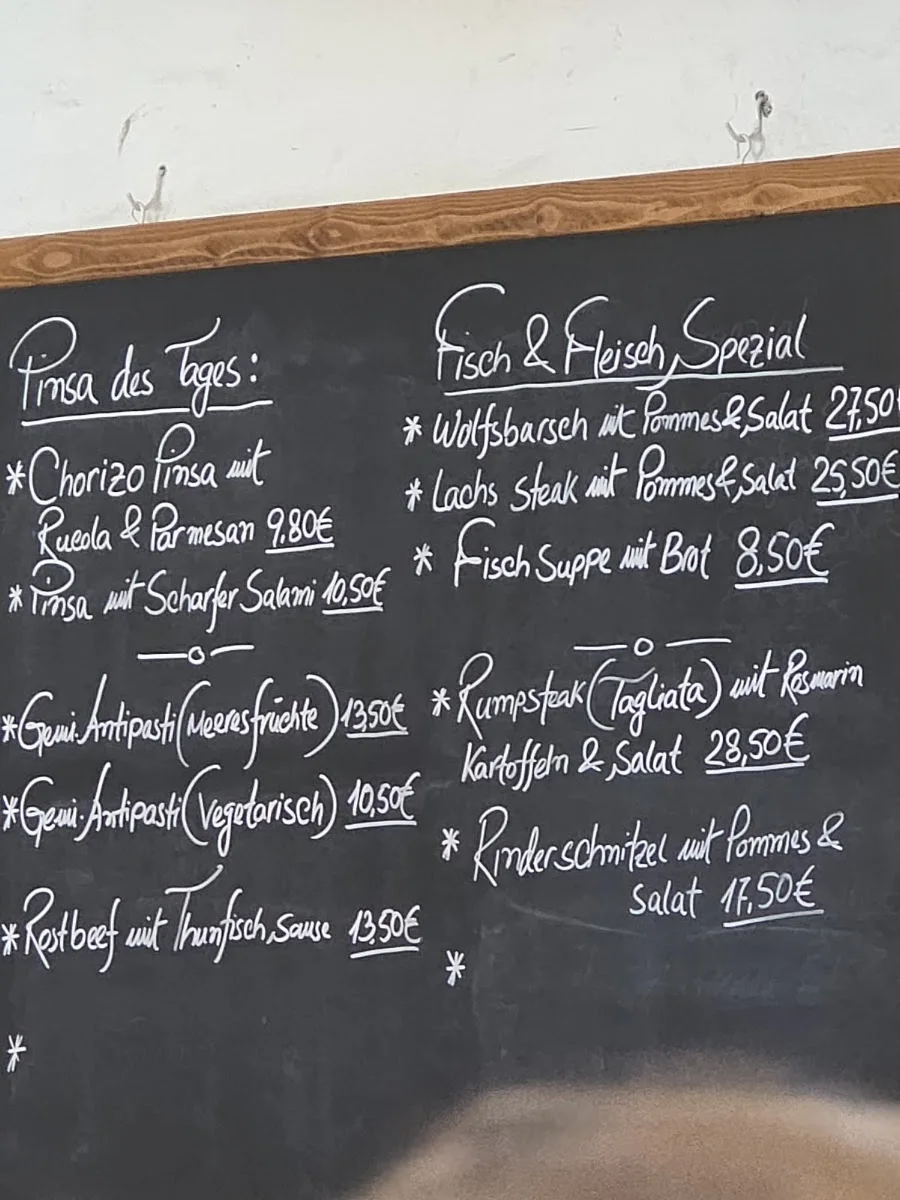 Pinsa des Tages:
* Chorizo Pinsa mit
Rucola & Parmesan 9.80€
* Pinsa mit Scharfer Salami 10,50€
* Gemi. Antipasti (Meeresfrüchte) 13,50€
* Gemi. Antipasti (Vegetarisch) 10,50€
* Rostbeef mit Thunfisch Sause 13.50€
*
Fisch & Fleisch Spezial
* Wolfsbarsch mit Pommes & Salat 27,50€
* Lachs Steak mit Pommes & Salat 25,50€
* Fisch Suppe mit Brot 8,50€
* Rumpsteak (Tagliata) mit Rosmarin
Kartoffeln & Salat 28,50€
* Rinderschnitzel mit Pommes &
Salat 17,50€
*